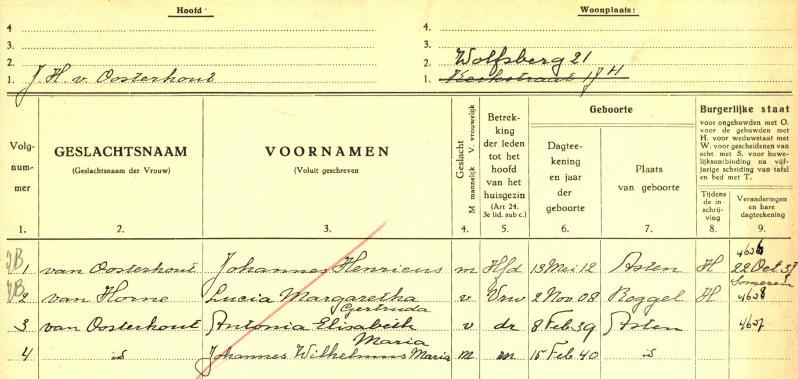 Hoofd: Woonplaats:
4 4.
3. 3.
2. 2. Wolfsberg 21
1. J. H. v. Oosterhout 1. Kerkstraat
Volgnummer GESLACHTSNAAM (Geslachtsnaam der Vrouw) VOORNAMEN (Voluit geschreven Geslacht M mannelijk V. vrouwelijk Betrekking der leden tot het hoofd van het huisgezin (Art 24, 3e lid. sub c.) Geboorte Dagteekening en jaar der geboorte Plaats van geboorte Burgerlijke staat
voor ongehuwden met O.
voor de gehuwden met
H. voor weduwstaat met
W. voor gescheidenen van
echt met S. voor huwelijksontbinding na vijfjarige scheiding van tafel
en bed met T.
Tijdens de inschrijving Veranderingen en hare dagteekening
1. 2. 3. 4. 5. 6. 7. 8. 9.
1 van Oosterhout Johannes Henricus m Hfd 13 Mei 12 Asten H 22 Oct 37 Someren
2 van Horne Lucia Margaretha Gertruda v Vrw 2 Nov 08 Roggel H
3 van Oosterhout Antonia Elisabeth Maria v dr 8 Feb 39 Asten
4 id Johannes Wilhelmus Maria m 15 Feb 40 id